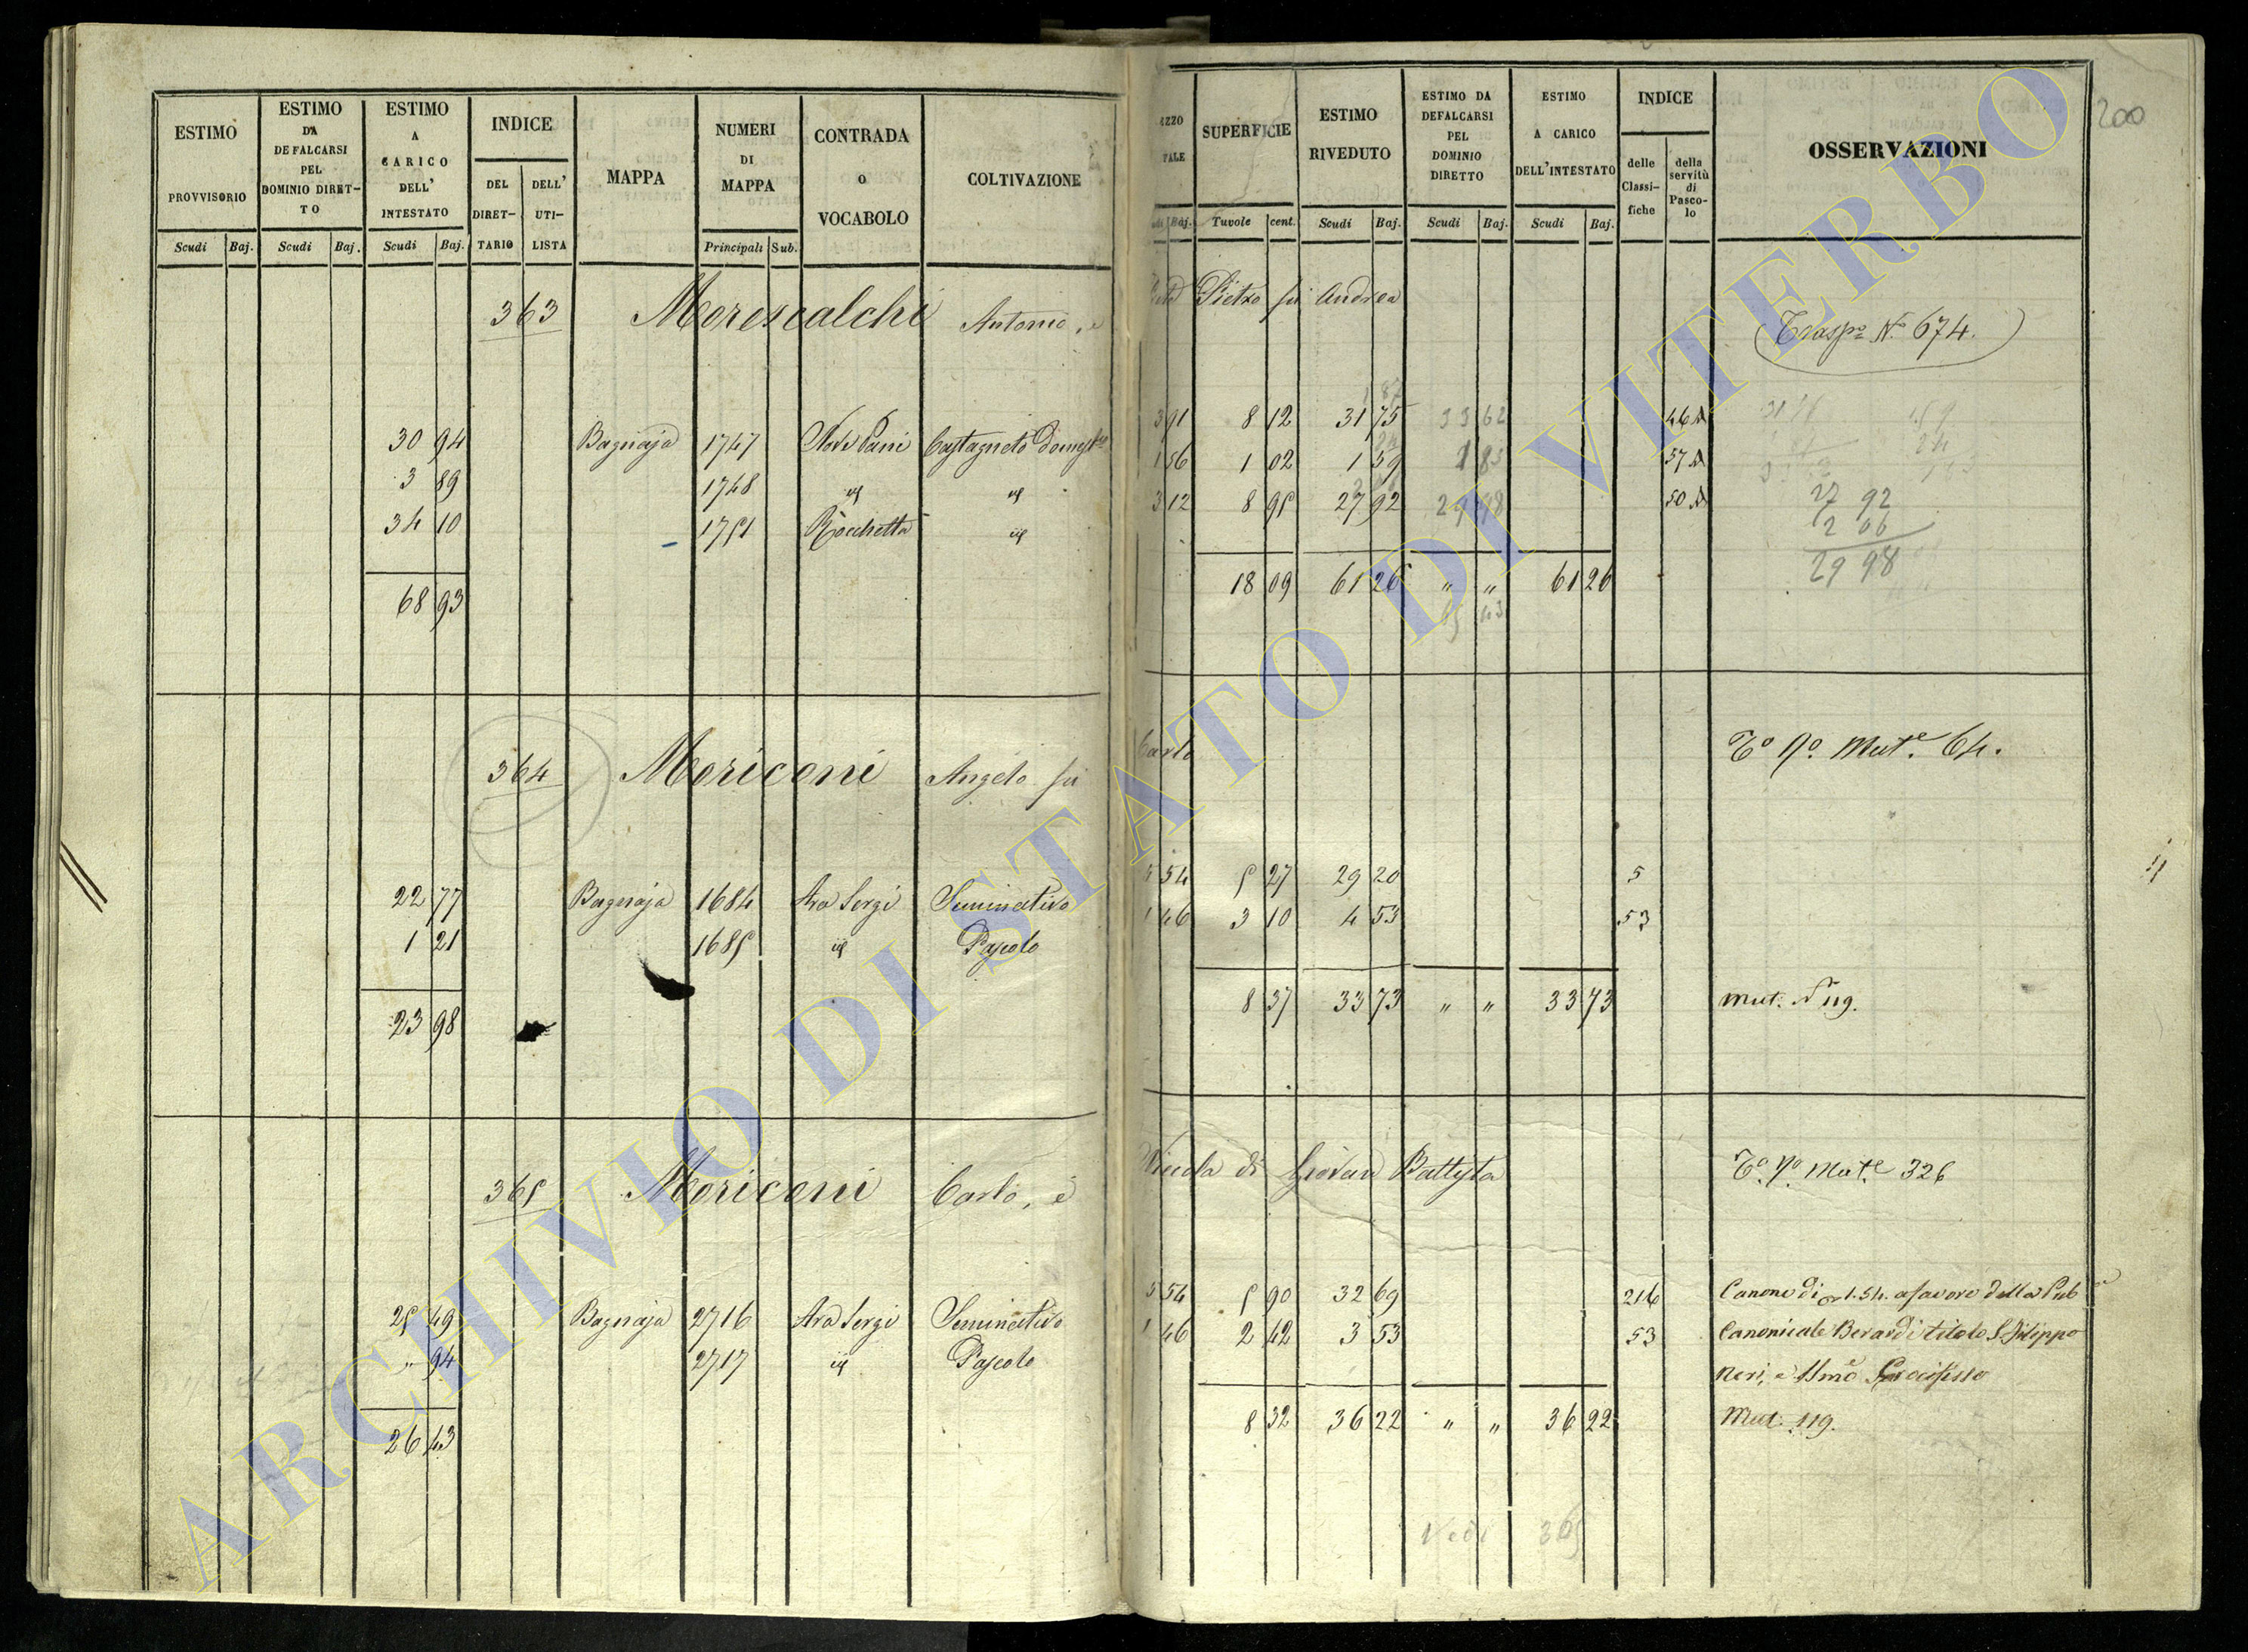 ESTIMO PROVVISORIO Scudi Baj.
ESTIMO DA DEFALCARSI PEL DOMINIO DIRETTO Scudi Baj.
ESTIMO A CARICO DELL' INTESTATO Scudi Baj.
INDICE DEL DIRETTARIO DELL' UTILISTA
MAPPA
NUMERI DI MAPPA Principali Sub.
CONTRADA O VOCABOLO
COLTIVAZIONE
363 Morescalchi Antonio, e
30 94 Bagnaja 1747
3 89 1748 id id
34 10 1751 Rocchetta id
68 93
364 Moriconi Angelo fu
22 77 Bagnaja 1684 Ara Sergi Seminativo
1 21 1685 id Pascolo
23 98
365 Moriconi Carlo, e
25 49 Bagnaja 2716 Ara Sergi Seminativo
" 94 2717 id Pascolo
26 43
EZZO TALE Baj.
SUPERFICIE Tavole cent.
ESTIMO RIVEDUTO Scudi Baj.
ESTIMO DA DEFALCARSI PEL DOMINIO DIRETTO Scudi Baj.
ESTIMO A CARICO DELL'INTESTATO Scudi Baj.
INDICE delle Classifiche della servitù di Pascolo
OSSERVAZIONI
200
Pietro fu Andrea
Trasp.o N.o 674.
3 91 8 12 31 75 33 62 46
1 56 1 02 1 59 1 83 37
3 12 8 95 27 92 29 98 50
27 92
2 06
29 98
18 09 61 26 " " 61 26
65 43
Carlo
T.o 7.o Mut.e 64.
5 54 5 27 29 20 5
1 46 3 10 4 53 53
8 37 33 73 " " 33 73 Mut. N 119.
Nicola di Giovan Battista
T.o 7.o Mut.e 326
5 54 5 90 32 69 216 Canone di 1.54. a favore della
1 46 2 42 3 53 53 Canonicale Berardi titolo S. Filippo
Neri, e Crocifisso
8 32 36 22 " " 36 22 Mut. 119.
Vedi 365
ARCHIVIO DI STATO DI VITERBO